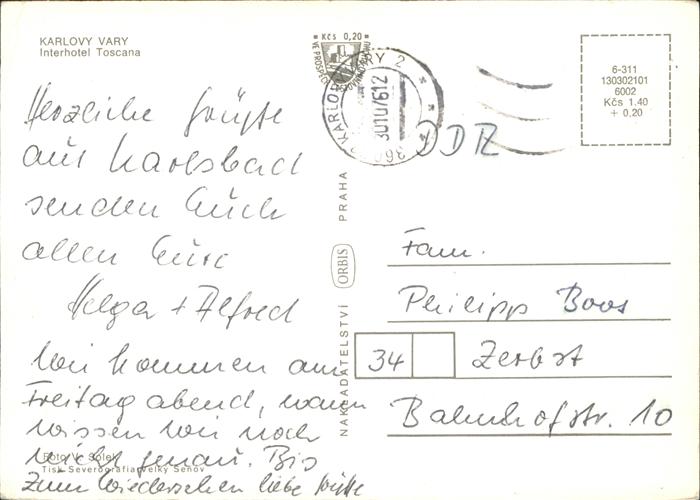 KARLOVY VARY
Interhotel Toscana
Herzliche Grüße
aus Karlsbad
senden Euch
allen Eure
Helga + Alfred
Wir kommen am
Freitag abend, wann
wissen wir noch
nicht genau. Bis
zum Wiedersehen liebe Grüße
Foto V. Solek
Tisk Severografia Velký Šenov
NAKLADATELSTVÍ ORBIS PRAHA
Kčs 0,20
KARLOVY VARY 2
30.10.76.12
DDR
6-311
130302101
6002
Kčs 1.40
+ 0,20
Fam.
Philipp Boos
34 Zerbst
Bahnhofstr. 10